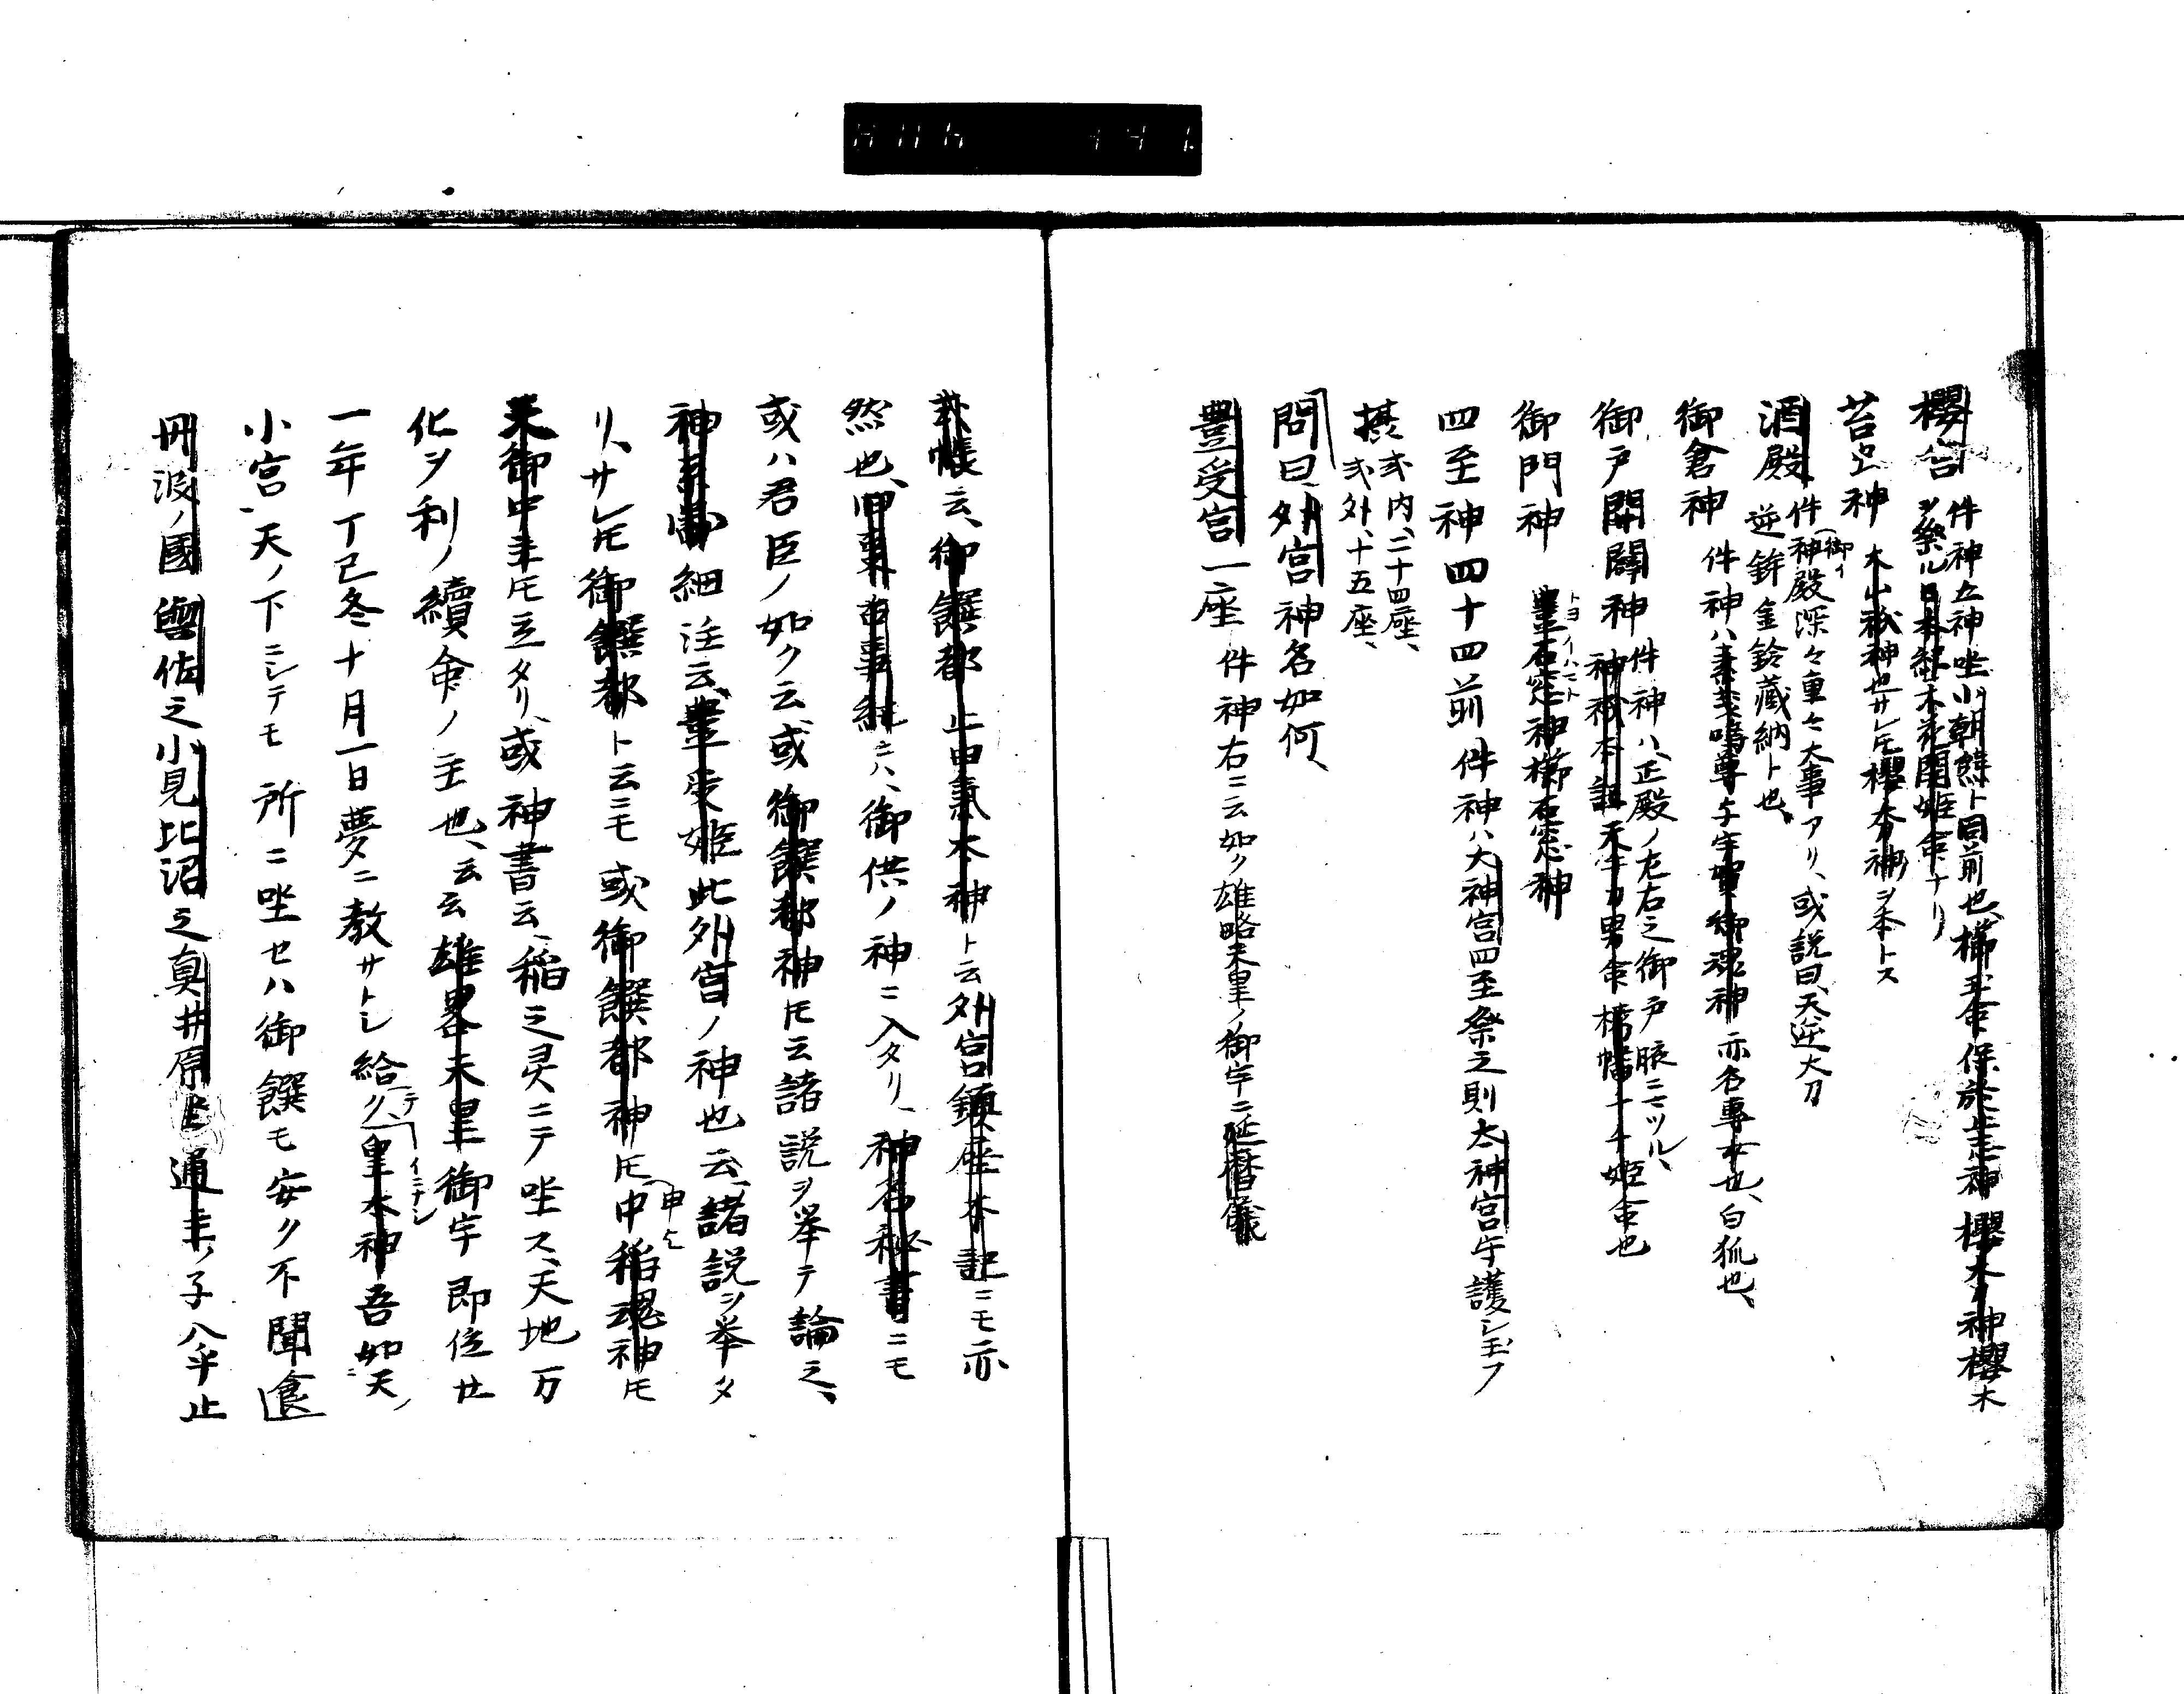 櫻宮 件神立神坐小朝熊ト同前也櫛玉命保於止志神櫻大刀神櫻木
ヲ祭ル日本紀木花開姫命ナリ
苔虫神 大山祇神也サレ𪜈櫻大刀神ヲ本トス
酒殿 件神殿深々重々大事アリ、或説曰、天逆大刀
(御イ
逆鉾金鈴蔵納ト也、
御倉神 件神ハ素戔嗚尊与宇賀御魂神亦名専女也、白狐也、
御戸開闢神 件神ハ、正殿ノ左右之御戸腋ニマツル、
神祇本記天手力男命栲幡千千姫命也
御門神 豊石窓神櫛石窓神
トヨイハマト
四至神四十四前 件神ハ大神宮四至祭之則太神宮守護シ玉フ
摂 式内、二十四座、
式外、十五座、
問曰、外宮神名如何、
豊受宮一座 件神右ニ云如ク雄略天皇ノ御宇ニ延暦儀
式帳云、御饌都止由氣太神ト云外宮鎮座本記ニモ亦
然也、旧事古事紀ニハ、御供ノ神ニ入タリ、神名秘書ニモ
或ハ君臣ノ如ク云或御饌都神𪜈云諸説ヲ挙テ論之、
神系圖細注云、豊受姫此外宮ノ神也云、諸説ヲ挙タ
リ、サレ𪜈御饌都ト云ニモ或御饌都神𪜈申稲魂神𪜈
天御中主𪜈立タリ、或神書云、稲之灵ニテ坐ス、天地万
化ヲ利ノ續命ノ主也、云云雄畧天皇御宇即位廿
一年丁巳冬十月一日夢ニ教サトシ給ク、皇太神吾如天ノ
テイニナシ
小宮、天ノ下ニシテモ所ニ坐セハ御饌モ安ク不聞食
丹波ノ國與佐之小見比沼之真井原坐道主ノ子八乎止